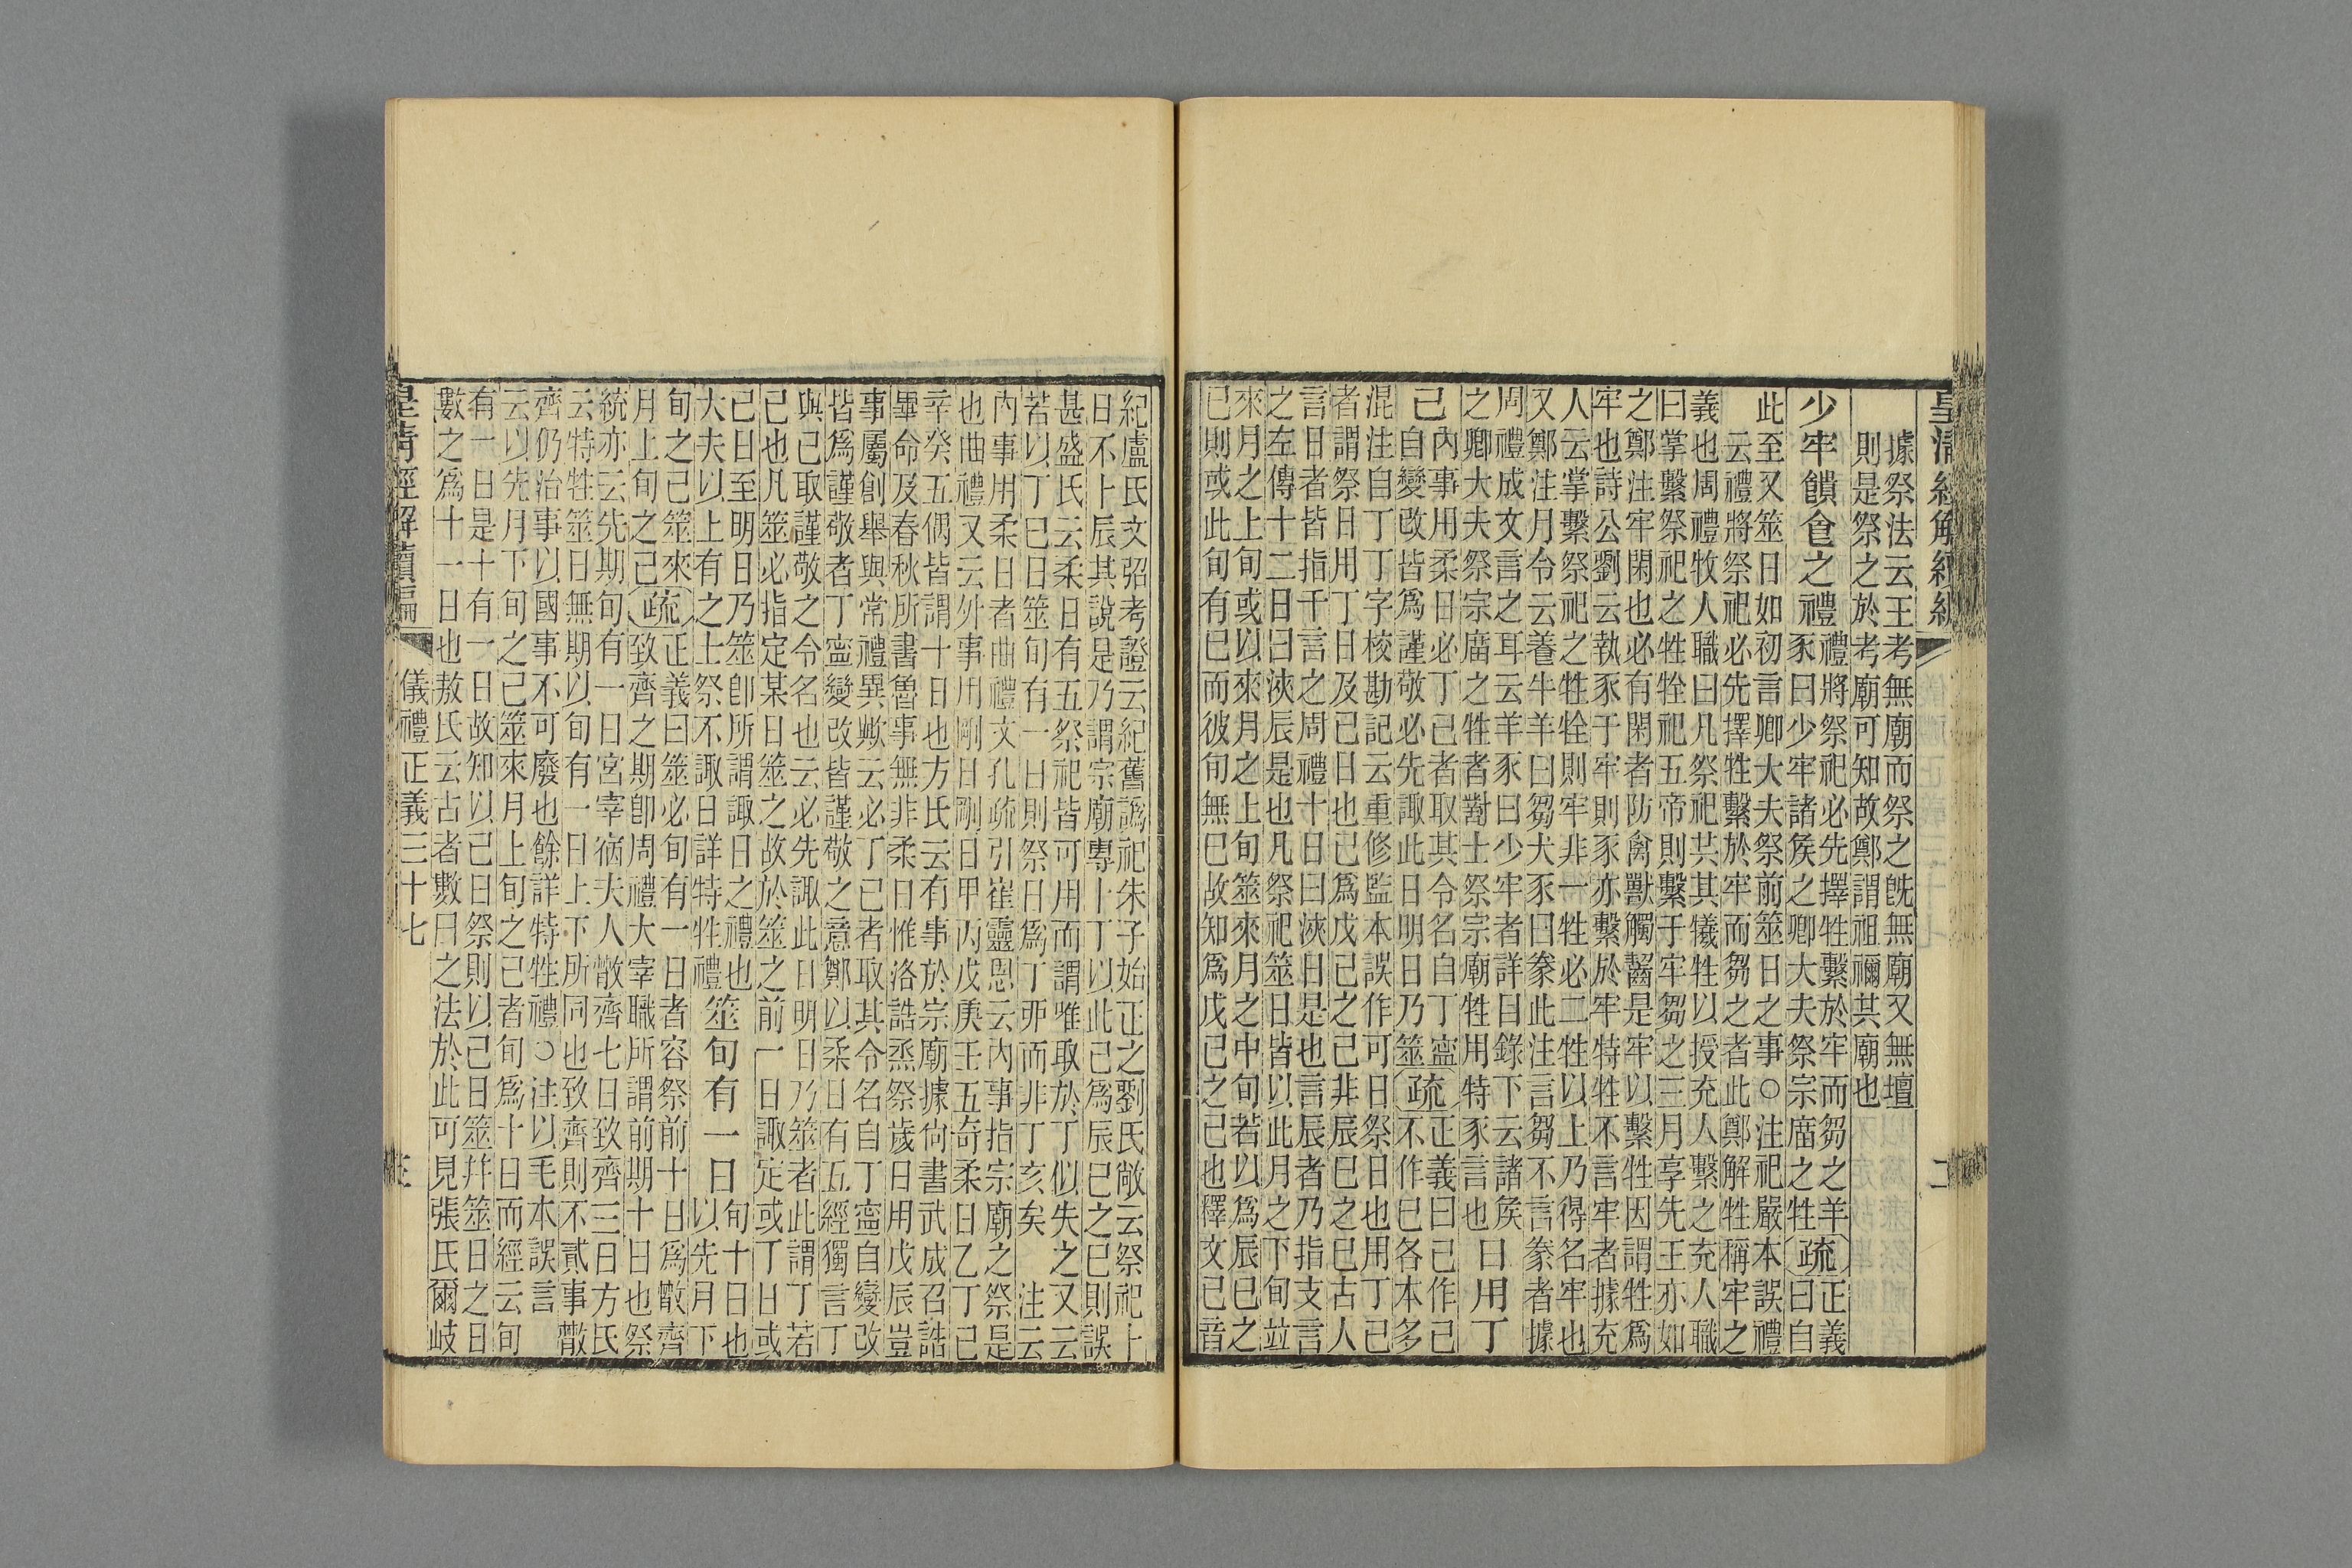 皇清經解續編
二
據祭法云王考無廟而祭之旣無廟又無壇
則是祭之於考廟可知故鄭謂祖禰其廟也
少牢饋食之禮
禮將祭祀必先擇牲繫於牢而芻之羊
豕曰少牢諸矦之卿大夫祭宗廟之牲
疏
正義
曰自
此至又筮日如初言卿大夫祭前筮日之事○注祀嚴本誤禮
云禮將祭祀必先擇牲繫於牢而芻之者此鄭解牲稱牢之
義也周禮牧人職曰凡祭祀共其犧牲以授充人繫之充人職
曰掌繫祭祀之牲牷祀五帝則繫于牢芻之三月享先王亦如
之鄭注牢閑也必有閑者防禽獸觸齧是牢以繫牲因謂牲爲
牢也詩公劉云執豕于牢則豕亦繫於牢特牲不言牢者據充
人云掌繫祭祀之牲牷則牢非一牲必二牲以上乃得名牢也
又鄭注月令云養牛羊曰芻犬豕曰豢此注言芻不言豢者據
周禮成文言之耳云羊豕曰少牢者詳目錄下云諸矦
之卿大夫祭宗廟之牲者對士祭宗廟牲用特豕言也
日用丁
己
內事用柔日必丁己者取其令名自丁寍
自變改皆爲謹敬必先諏此日明日乃筮
疏
正義曰己作己
不作巳各本多
混注自丁丁字校勘記云重修監本誤作可日祭日也用丁己
者謂祭日用丁日及己日也已爲戊己之己非辰巳之巳古人
言日者皆指千言之周禮十日曰浹日是也言辰者乃指支言
之左傳十二日曰浹辰是也凡祭祀筮日皆以此月之下旬並
來月之上旬或以來月之上旬筮來月之中旬若以爲辰巳之
巳則或此旬有巳而彼旬無巳故知爲戊己之己也釋文己音
紀盧氏文弨考證云紀舊譌祀朱子始正之劉氏敞云祭祀上
日不卜辰其說是乃謂宗廟專卜丁以此己爲辰巳之巳則誤
甚盛氏云柔日有五祭祀皆可用而謂唯取於丁似失之又云
若以丁巳日筮旬有一日則祭日爲丁丣而非丁亥矣
注云
內事用柔日者曲禮文孔疏引崔靈恩云內事指宗廟之祭是
也曲禮又云外事用剛日剛日甲丙戊庚壬五奇柔日乙丁己
辛癸五偶皆謂十日也方氏云有事於宗廟據尙書武成召誥
畢命及春秋所書魯事無非柔日惟洛誥烝祭歲日用戊辰豈
事屬創舉與常禮異歟云必丁己者取其令名自丁寍自變改
皆爲謹敬者丁寍變改皆謹敬之意鄭以柔日有五經獨言丁
與己取謹敬之令名也云必先諏此日明日乃筮者此謂丁若
己也凡筮必指定某日筮之故於筮之前一日諏定或丁日或
己日至明日乃筮卽所謂諏日之禮也
大夫以上有之士祭不諏日詳特牲禮
筮旬有一日
旬十日也
以先月下
旬之己筮來
月上旬之己
疏
正義曰筮必旬有一日者容祭前十日爲散齊
致齊之期卽周禮大宰職所謂前期十日也祭
統亦云先期旬有一日宮宰宿夫人散齊七日致齊三日方氏
云特牲筮日無期以旬有一日上下所同也致齊則不貳事散
齊仍治事以國事不可廢也餘詳特牲禮○注以毛本誤言
云以先月下旬之己筮來月上旬之己者旬爲十日而經云旬
有一日是十有一日故知以己日祭則以己日筮幷筮日之日
數之爲十一日也敖氏云古者數日之法於此可見張氏爾岐
皇清經解續編
儀禮正義三十七